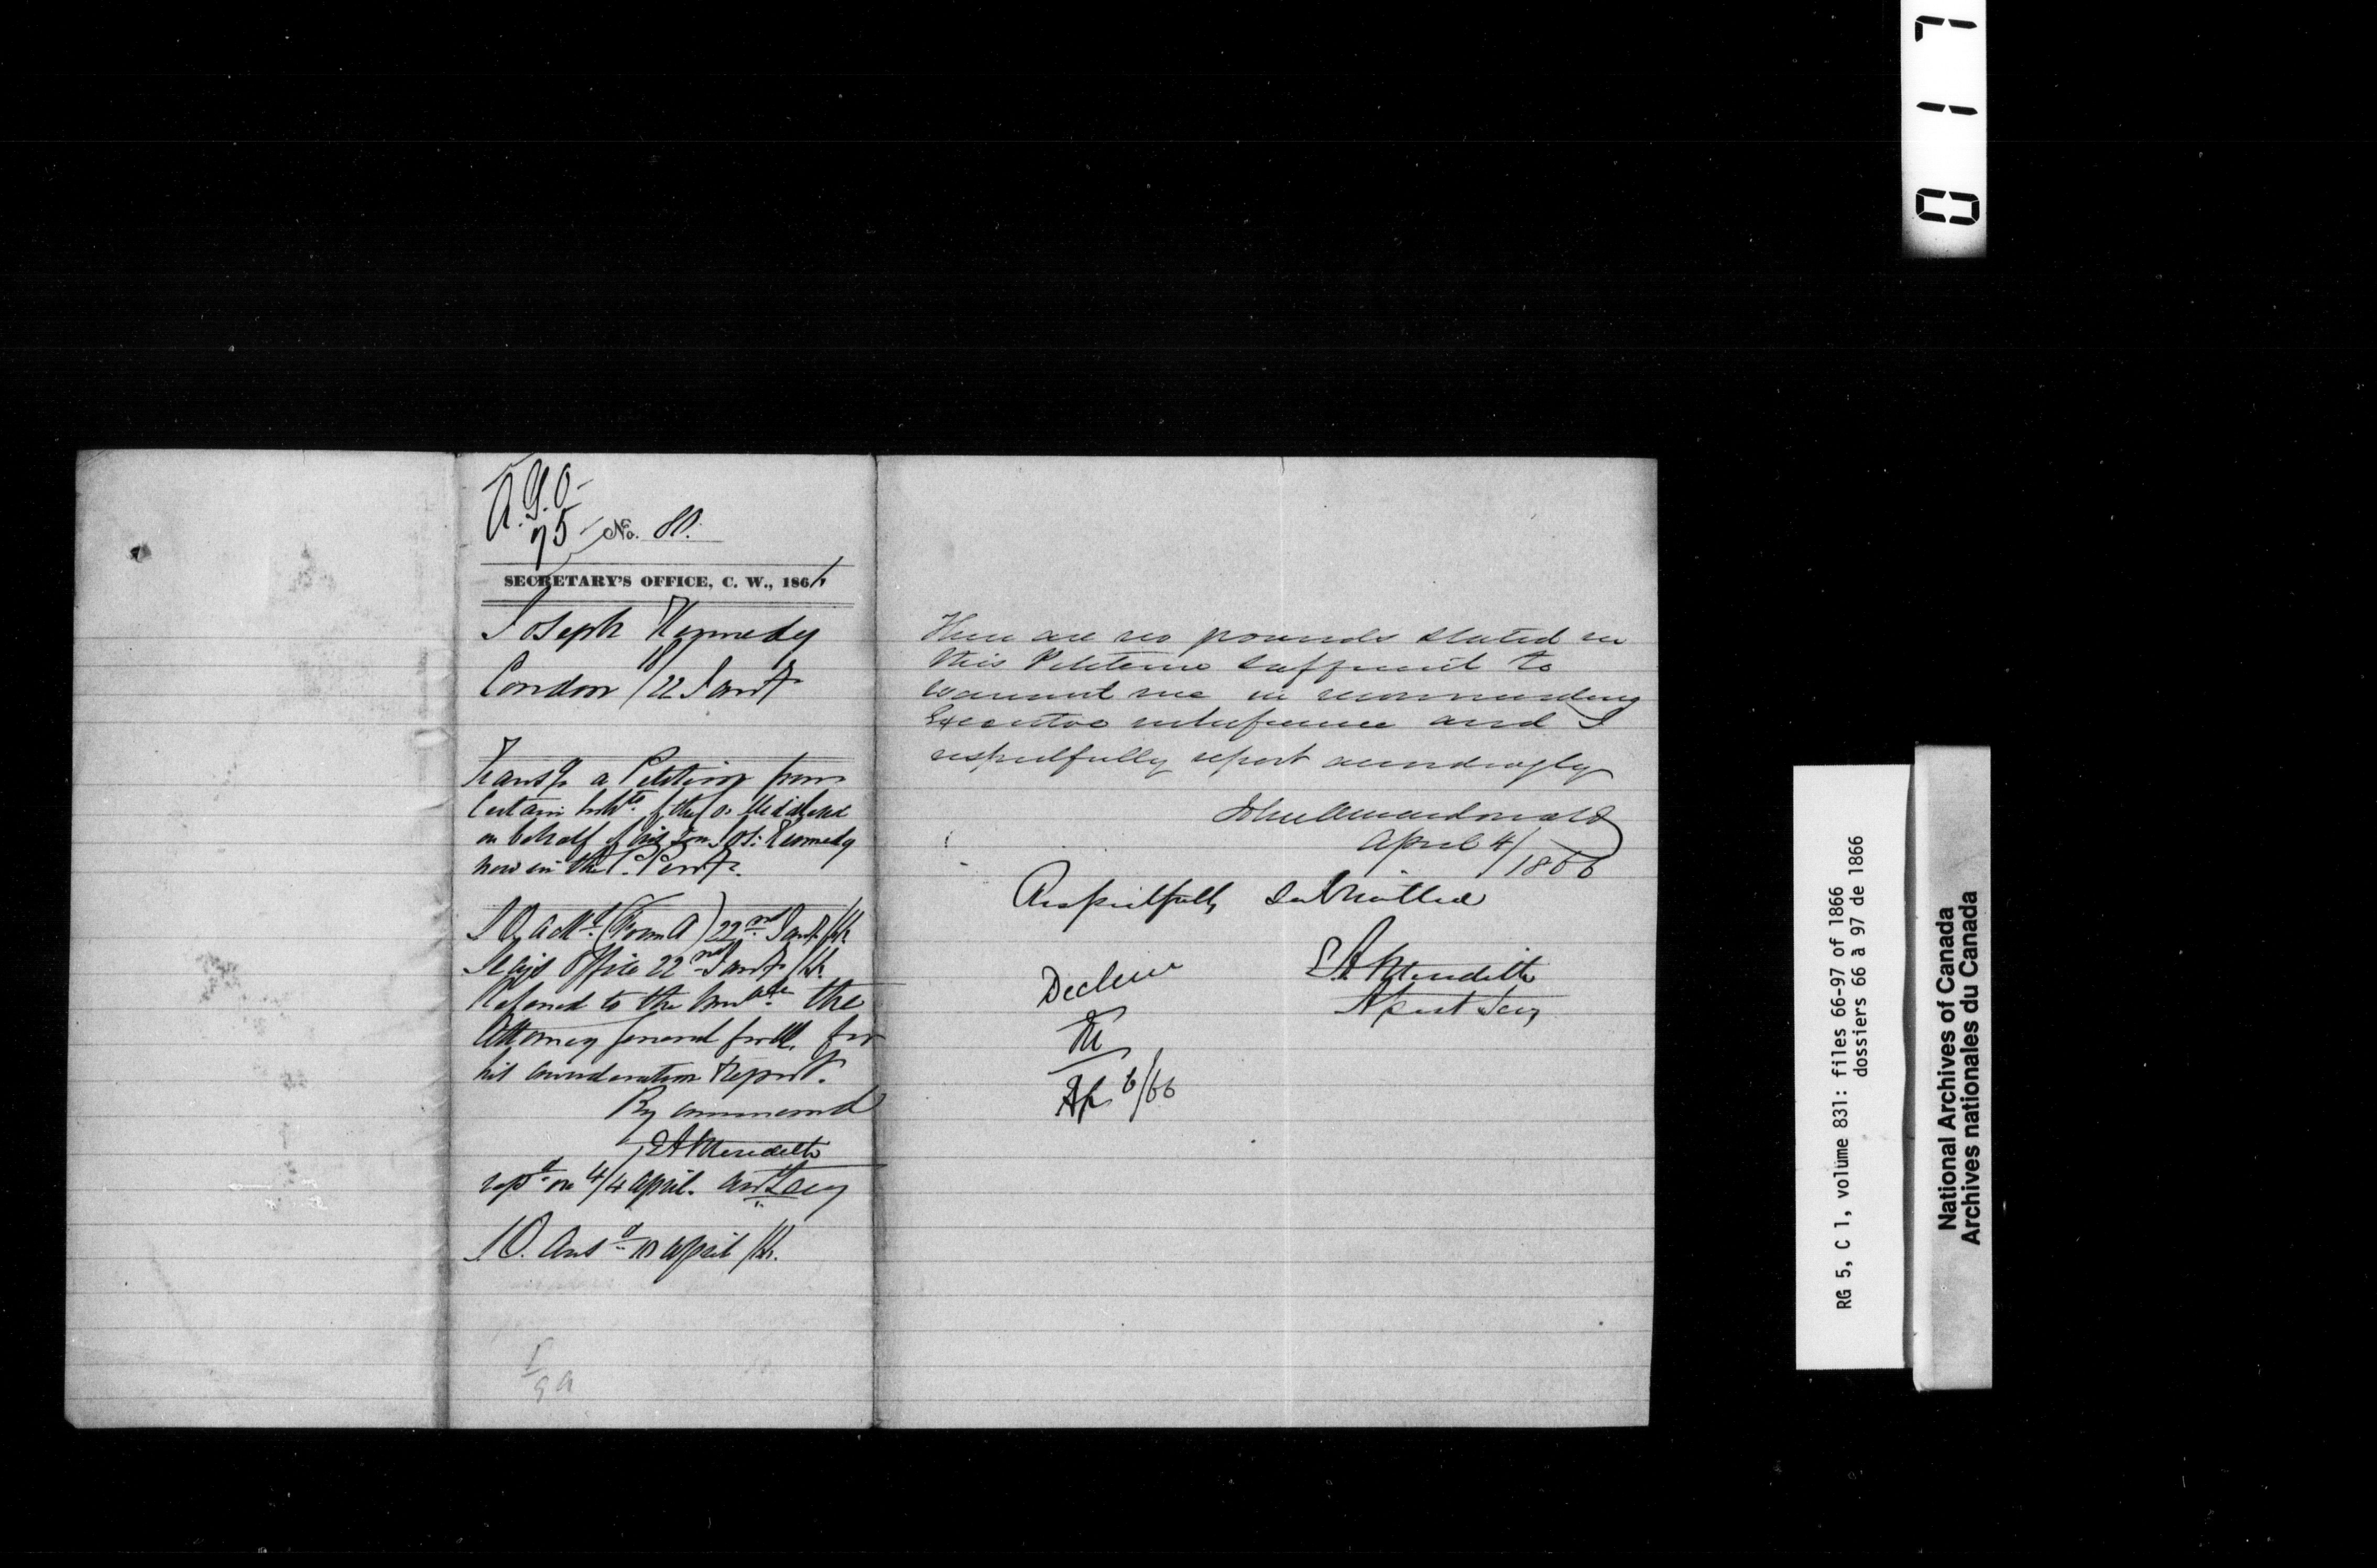 A.G.O.
75
No. 80.
SECRETARY'S OFFICE, C. W., 1866
Joseph Kennedy
London 18/22 Jany
Transg a Petition from
Certain Inhts of the Co. Middlesex
on behalf of his Son Jos: Kennedy
now in the P. Penty.
S O. ackd (Form A) 22nd Jany /66.
Secys Office 22nd Jany /66.
Referred to the Honble the
Attorney General for
his consideration & report.
By command
E A Meredith
repd on 4/4 April. Asst Secy
S O. Ansd 10 April /66.
There are no grounds stated in
this Petition sufficient to
warrant me in recommending
Executive interference and I
respectfully report accordingly
John A Macdonald
April 4/1866
Respectfully submitted
E. A. Meredith
Asst Secy
Decline
M
Ap 6/66
0 1 1 7
RG 5, C 1, volume 831: files 66-97 of 1866
dossiers 66 à 97 de 1866
National Archives of Canada
Archives nationales du Canada